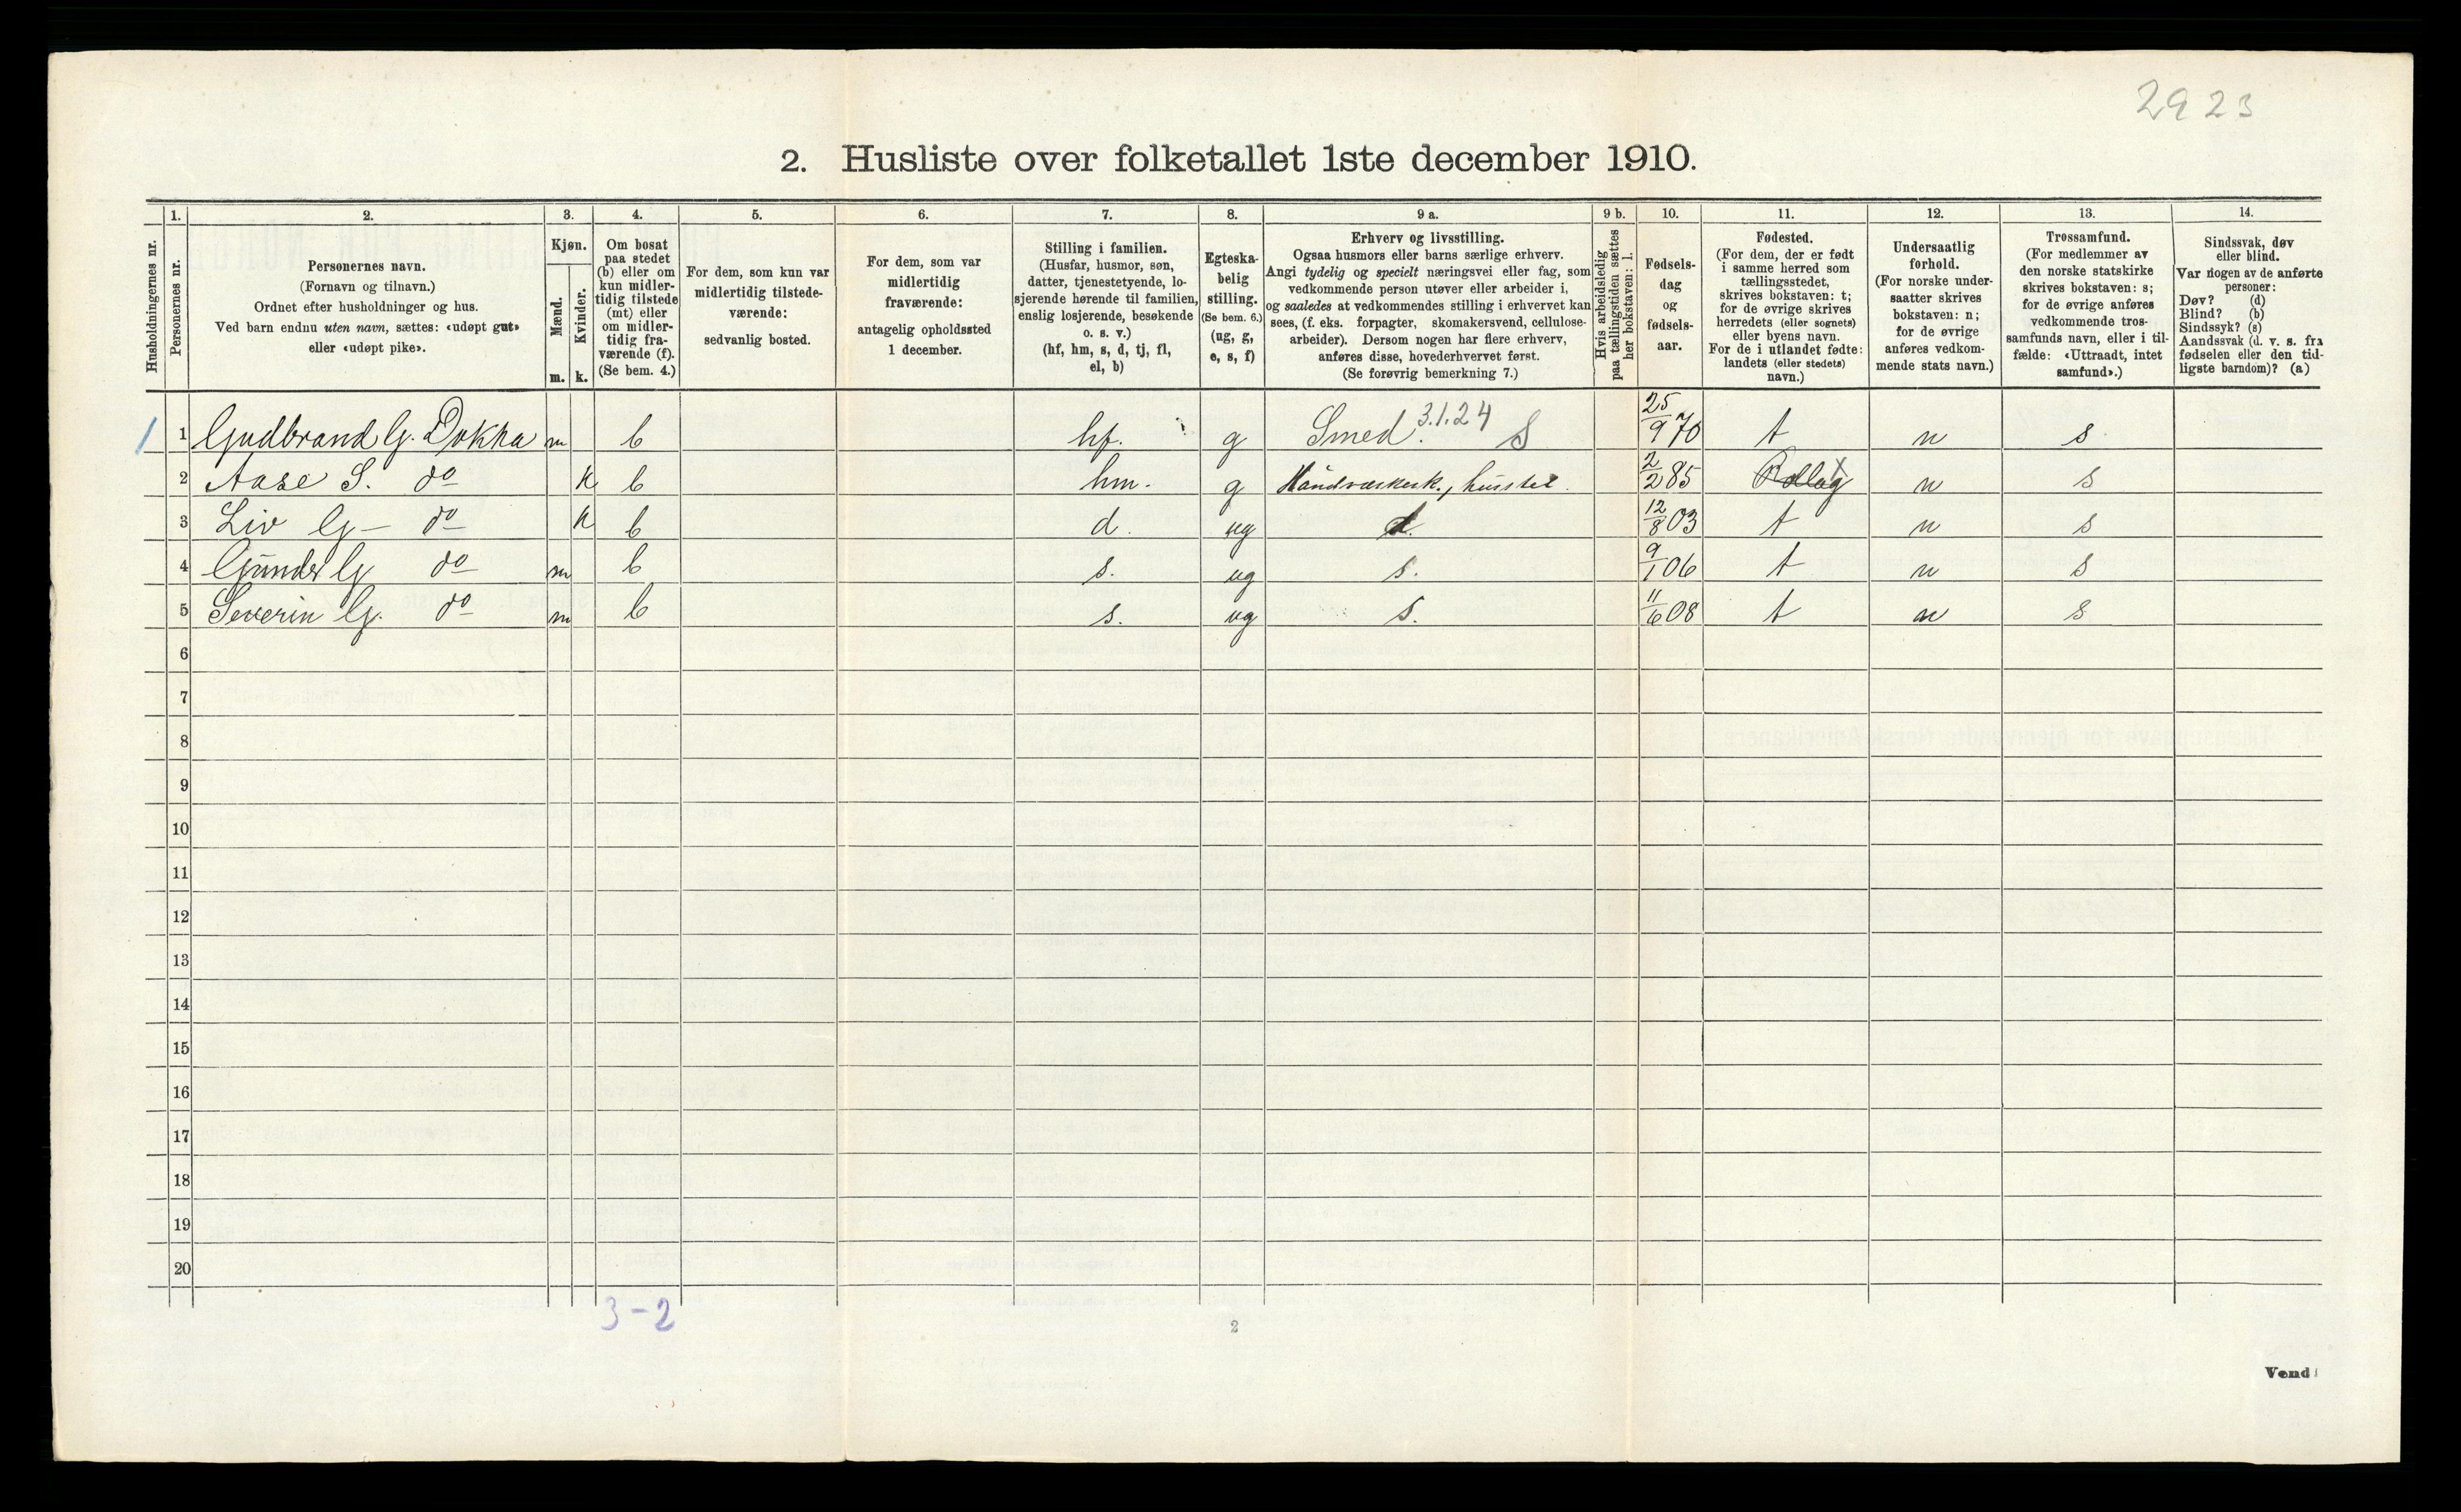 2923
2. Husliste over folketallet 1ste december 1910.
Husholdningernes nr.
1.
Personernes nr.
2.
Personernes navn.
(Fornavn og tilnavn.)
Ordnet efter husholdninger og hus.
Ved barn endnu uten navn, sættes: «udøpt gut»
eller «udøpt pike».
3.
Kjøn.
Mænd.
Kvinder.
m. k.
4.
Om bosat
paa stedet
(b) eller om
kun midler-
tidig tilstede
(mt) eller
om midler-
tidig fra-
værende (f).
(Se bem. 4.)
5.
For dem, som kun var
midlertidig tilstede-
værende:
sedvanlig bosted.
6.
For dem, som var
midlertidig
fraværende:
antagelig opholdssted
1 december.
7.
Stilling i familien.
(Husfar, husmor, søn,
datter, tjenestetyende, lo-
sjerende hørende til familien,
enslig losjerende, besøkende
o. s. v.)
(hf, hm, s, d, tj, fl,
el, b)
8.
Egteska-
belig
stilling.
(Se bem. 6.)
(ug, g,
e, s, f)
9 a.
Erhverv og livsstilling.
Ogsaa husmors eller barns særlige erhverv.
Angi tydelig og specielt næringsvei eller fag, som
vedkommende person utøver eller arbeider i,
og saaledes at vedkommendes stilling i erhvervet kan
sees, (f. eks. forpagter, skomakersvend, cellulose-
arbeider). Dersom nogen har flere erhverv,
anføres disse, hovederhvervet først.
(Se forøvrig bemerkning 7.)
9 b.
Hvis arbeidsledig
paa tællingstiden sættes
her bokstaven: l.
10.
Fødsels-
dag
og
fødsels-
aar.
11.
Fødested.
(For dem, der er født
i samme herred som
tællingsstedet,
skrives bokstaven: t;
for de øvrige skrives
herredets (eller sognets)
eller byens navn.
For de i utlandet fødte:
landets (eller stedets)
navn.)
12.
Undersaatlig
forhold.
(For norske under-
saatter skrives
bokstaven: n;
for de øvrige
anføres vedkom-
mende stats navn.)
13.
Trossamfund.
(For medlemmer av
den norske statskirke
skrives bokstaven: s;
for de øvrige anføres
vedkommende tros-
samfunds navn, eller i til-
fælde: «Uttraadt, intet
samfund».)
14.
Sindssvak, døv
eller blind.
Var nogen av de anførte
personer:
Døv? (d)
Blind? (b)
Sindssyk? (s)
Aandssvak (d. v. s. fra
fødselen eller den tid-
ligste barndom)? (a)
1 1 Gudbrand G. Dokka m b hf. g Smed. 3.1.24 S 25/9 70 t n s
2 Aase S. do k b hm. g Håndværkerk., husstel. 2/2 85 Rollag n s
3 Liv G — do k b d. ug d. 12/8 03 t n s
4 Gunder G do m b s. ug s. 9/1 06 t n s
5 Severin G. do m b s. ug s. 11/6 08 t n s
6
7
8
9
10
11
12
13
14
15
16
17
18
19
20
3-2
2
Vend!